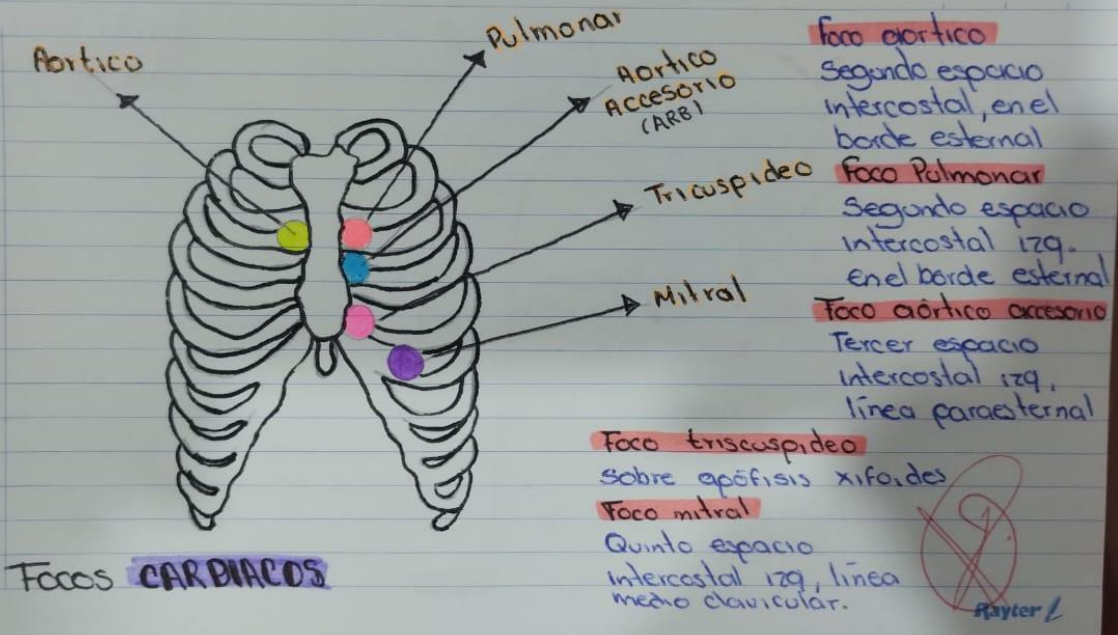 Aortico
Pulmonar
Aortico
Accesorio
(ARB)
Tricuspideo
Mitral
Foco aortico
Segundo espacio
intercostal, en el
borde esternal
Foco Pulmonar
Segundo espacio
intercostal izq.
en el borde esternal
Foco aórtico accesorio
Tercer espacio
intercostal izq,
línea paraesternal
Foco triscuspideo
sobre apófisis xifoides
Foco mitral
Quinto espacio
intercostal izq, línea
medio clavicular.
Focos CARDIACOS
Rayter L